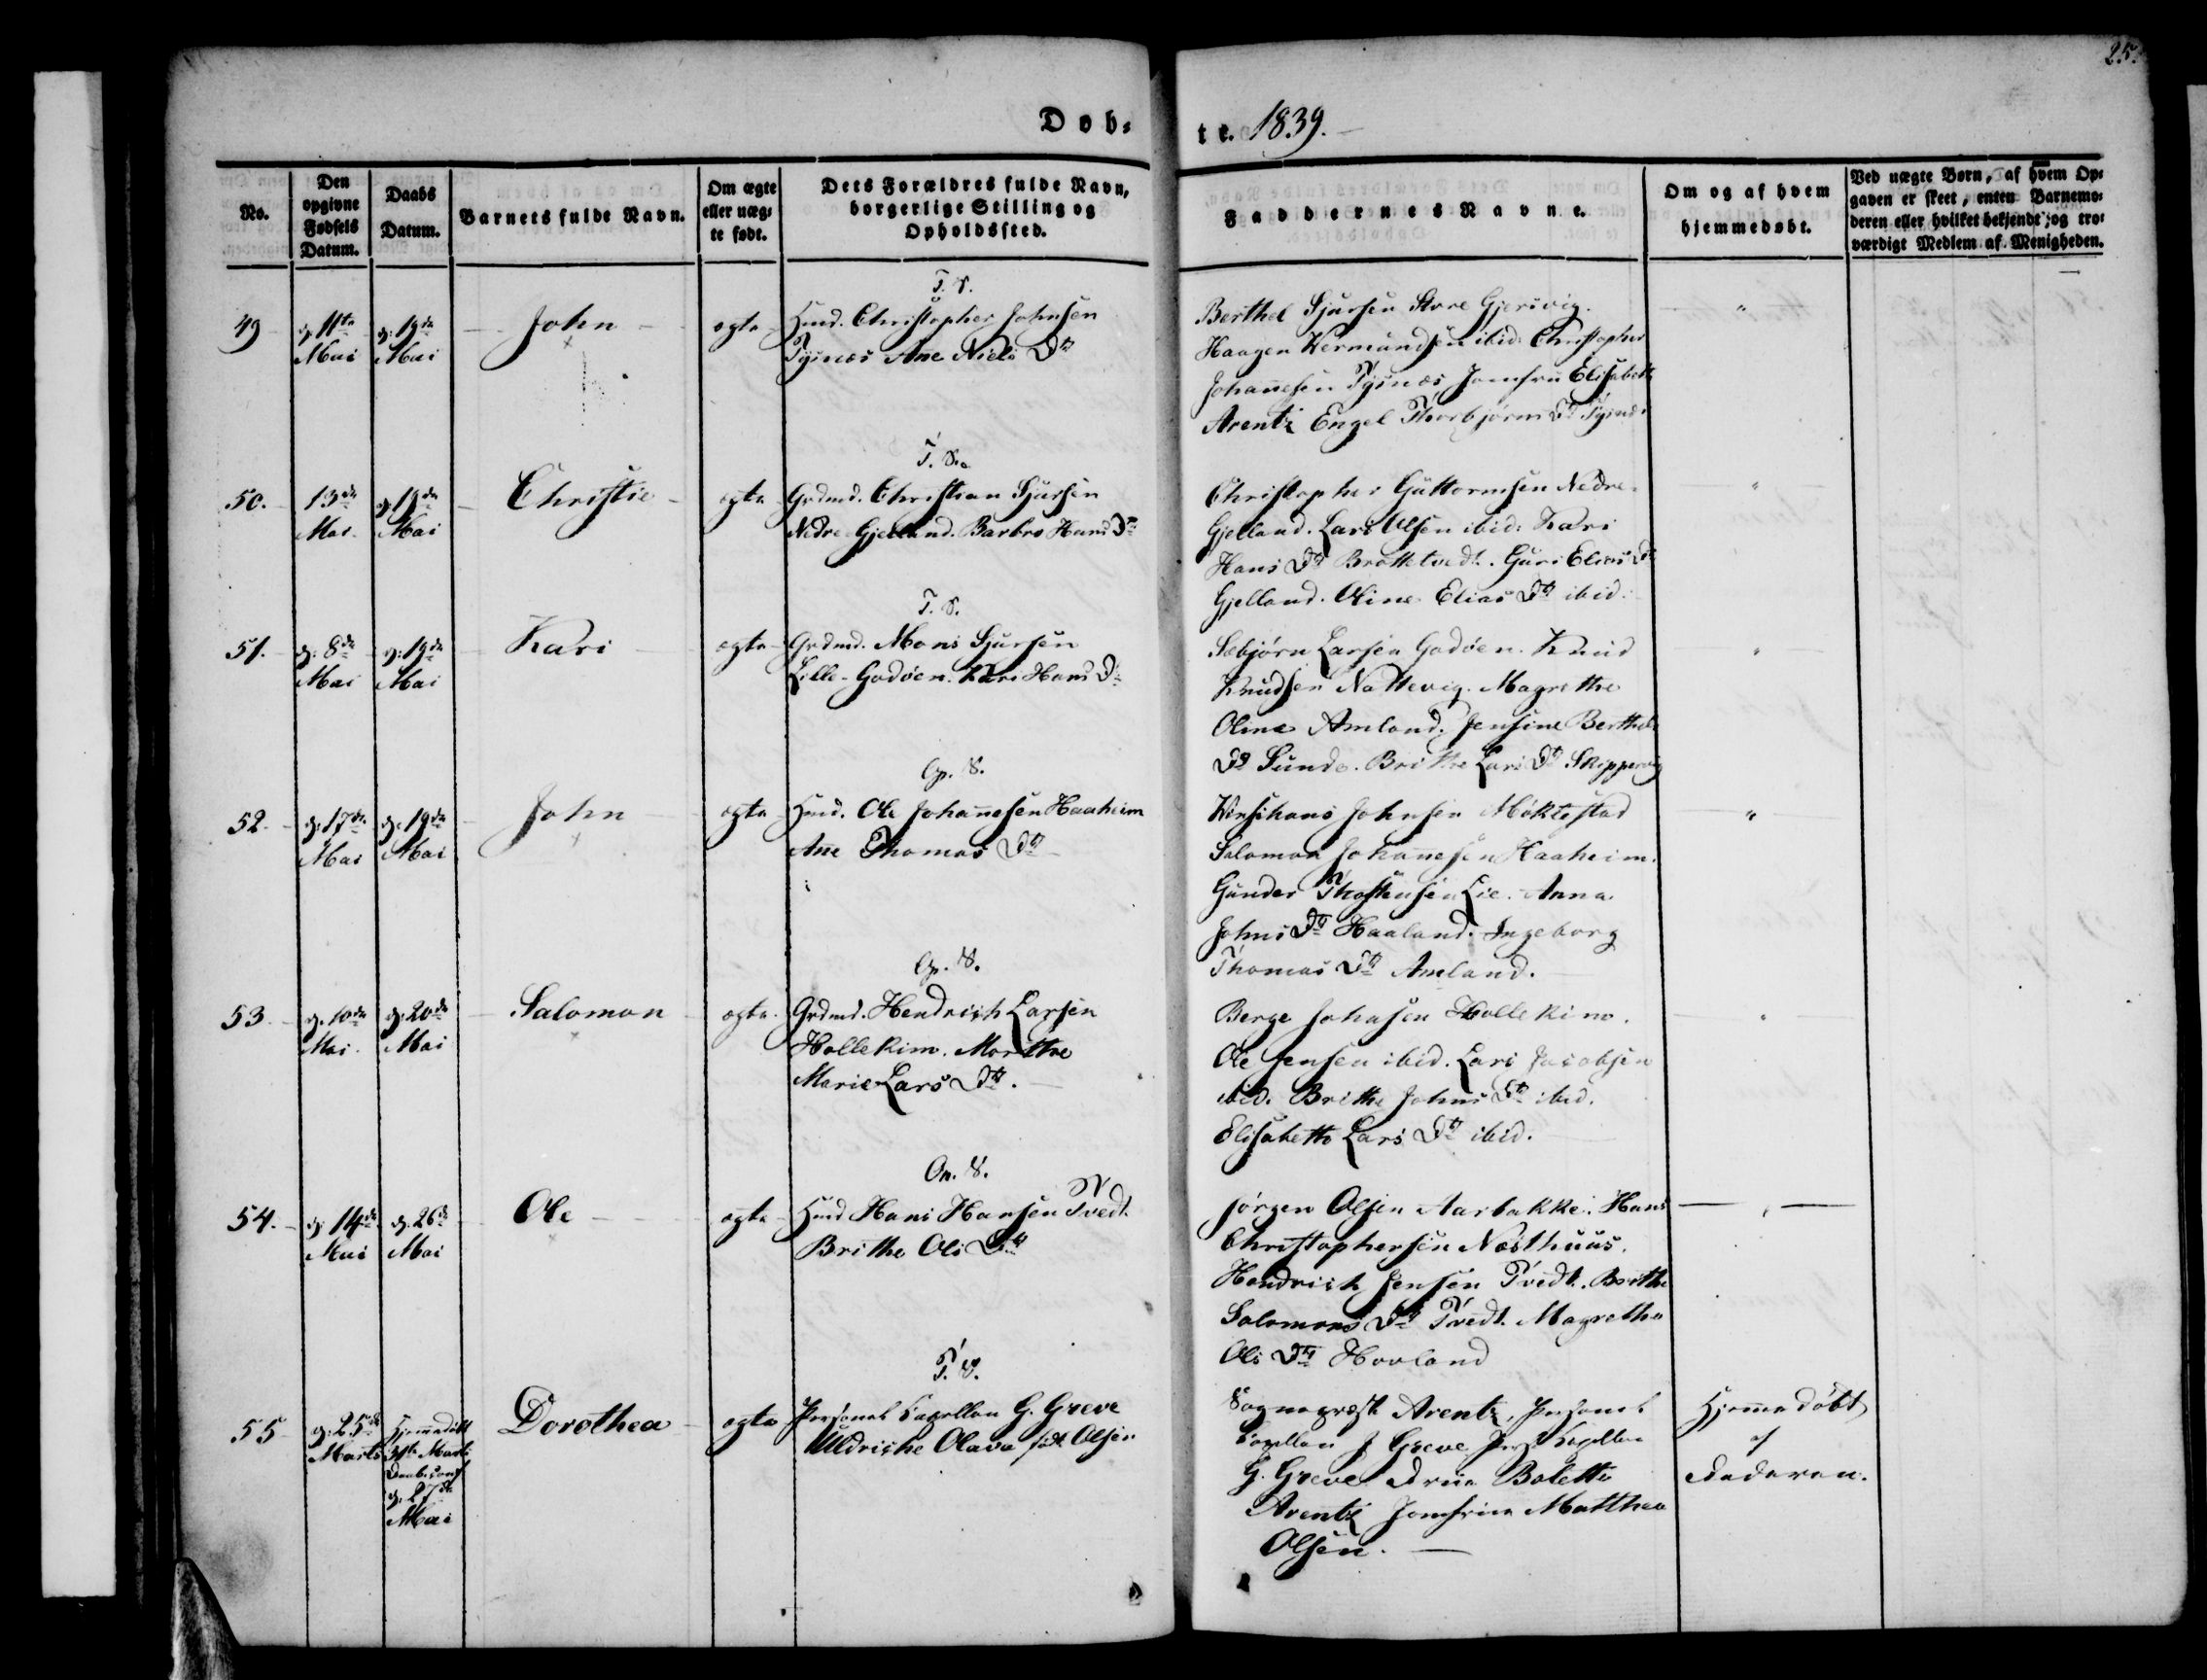 25.
Døb-
te. 1839.
No.
Den opgivne Fødsels Datum.
Daabs Datum.
Barnets fulde Navn.
Om ægte eller uægte født.
Dets Forældres fulde Navn, borgerlige Stilling og Opholdssted.
Faddernes Navne.
Om og af hvem hjemmedøbt.
Ved uægte Børn, af hvem Opgaven er skeet, enten Barnemoderen eller hvilket bekjendt, og troværdigt Medlem af Menigheden.
T. S.
49 d. 11te Mai d. 19de Mai John ægte Huusmd. Christopher Johnsen
Tysnæs Ane Niels Dtr
Berthel Sjursen Store Gjersvig.
Haagen Wermundsen ibid. Christopher
Johannesen Tysnæs, Jomfru Elisabeth
Arentz Engel Thorbjørns Dtr Tysnæs
T. S.
50. 13de Mai d. 19de Mai Christie ægte Grdmd. Christian Sjursen
Nedre Gjelland. Barbro Hans Dtr
Christopher Guttormsen Nedre
Gjelland. Lars Olsen ibid. Kari
Hans Dtr Brottetvedt. Guri Elias Dtr
Gjelland. Oline Elias Dtr ibid.
T. S.
51. d. 8de Mai d. 19de Mai Kari ægte Grdmd. Mons Sjursen
Lille-Godøen. Kari Hans Dtr
Sæbjørn Larsen Godøen. Knud
Knudsen Nattevig. Magrethe
Oline Amland. Jensine Berthels
Dtr Sunde. Brithe Lars Dtr Skippervig
Op. S.
52. d. 17de Mai d. 19de Mai John ægte Hmd. Ole Johannesen Haaheim
Ane Thomas Dtr
Johnsen Møktestad
Salomon Johannesen Haaheim.
Gunder Thostensen Lie. Anna
Johns Dtr Haaland. Ingeborg
Thomas Dtr Amland.
Op. S.
53. d. 10de Mai d. 20de Mai Salomon ægte Grdmd. Hendrich Larsen
Hollekim. Marthe
Marie Lars Dtr.
Berge Johnsen Hollekim.
Ole Jensen ibid. Lars Jacobsen
ibid. Brithe Johns Dtr ibid.
Elisabeth Lars Dtr ibid.
On. S.
54. d. 14de Mai d. 26de Mai Ole ægte Hmd Hans Hansen Tvedt.
Brithe Ols Dtr
Jørgen Olsen Aarbakke. Hans
Christophersen Næsthuus.
Hendrich Jensen Tvedt. Berthe
Salomons Dtr Tvedt. Magrethe
Ols Dtr Hovland
T. S.
55 d. 25de Marts Hjemmedøbt 31te Marts d. 27de Mai Dorothea ægte Personel Capellan G. Greve
Uldriche Olava født Olsen
Sognepræst Arentz, Personel
Capellan J Greve, Pers. Kapellan
G. Greve Frue Bolette
Arentz Jomfrue Matthea
Olsen.
Hjemmedøbt
af
Faderen.